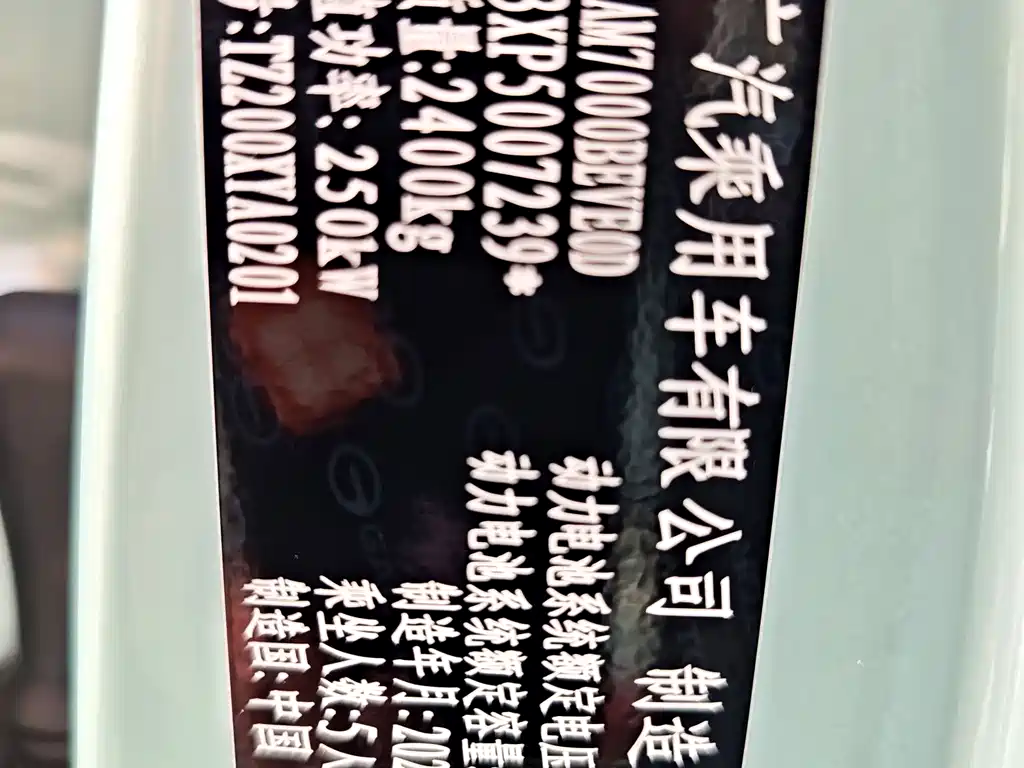 广汽乘用车有限公司 制造
AM7000BEVE0D 动力电池系统额定电压
XP5007239* 动力电池系统额定容量
量:2400kg 制造年月:202
功率:250kW 乘坐人数:5人
:TZ200XYA0201 制造国:中国